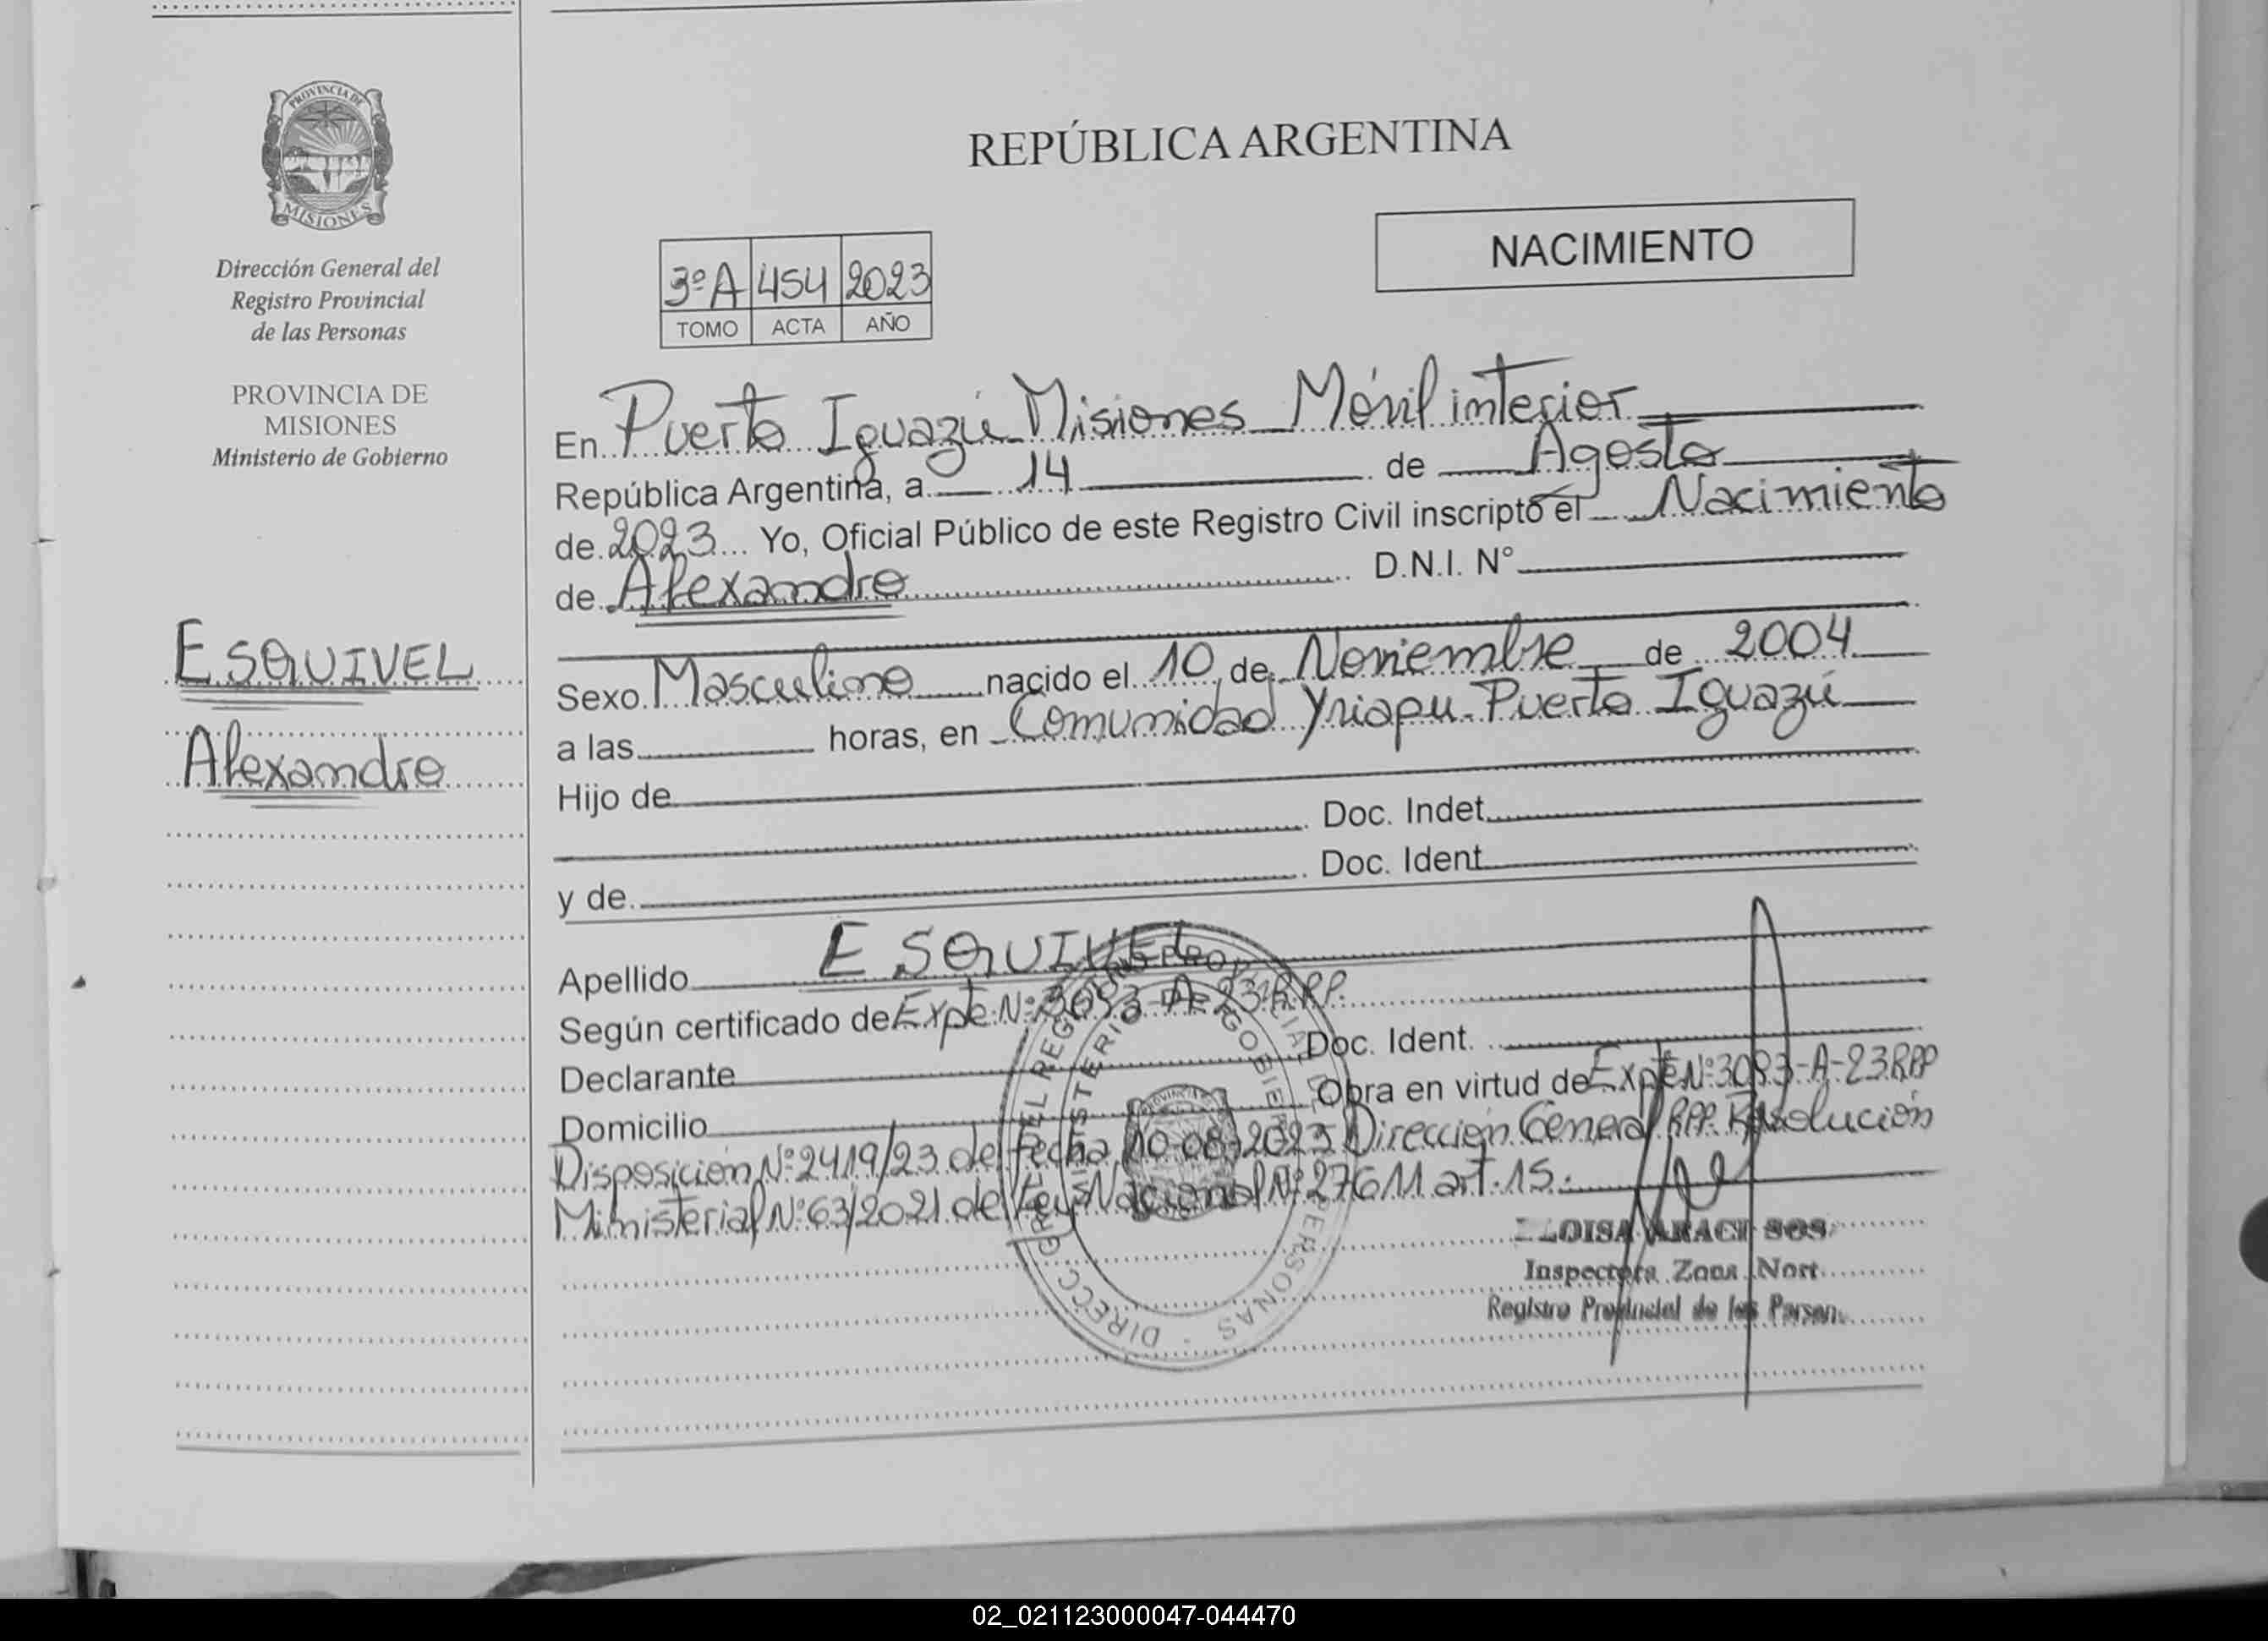 PROVINCIA DE
MISIONES
Dirección General del
Registro Provincial
de las Personas
PROVINCIA DE
MISIONES
Ministerio de Gobierno
ESQUIVEL
Alexandro
REPÚBLICA ARGENTINA
NACIMIENTO
3º A 454 2023
TOMO ACTA AÑO
En Puerto Iguazú Misiones Móvil interior
República Argentina, a 14 de Agosto
de 2023 Yo, Oficial Público de este Registro Civil inscripto el Nacimiento
de Alexandro D.N.I. N°
Sexo Masculino nacido el 10 de Noviembre de 2004
a las horas, en Comunidad Yriapu - Puerto Iguazú
Hijo de
Doc. Indet.
y de. Doc. Ident
Apellido ESQUIVEL
Según certificado de Expte Nº 3093-A-23 R.P.P.
Declarante Doc. Ident.
Domicilio Obra en virtud de Expte Nº 3093-A-23 RPP
Disposición Nº 2419/23 de fecha 10-08-2023 Dirección General RPP. Resolución
Ministerial Nº 63/2021 de Ley Nacional Nº 27611 art. 15.
Inspectora Zona Nort
Registro Provincial de las Person
02_021123000047-044470